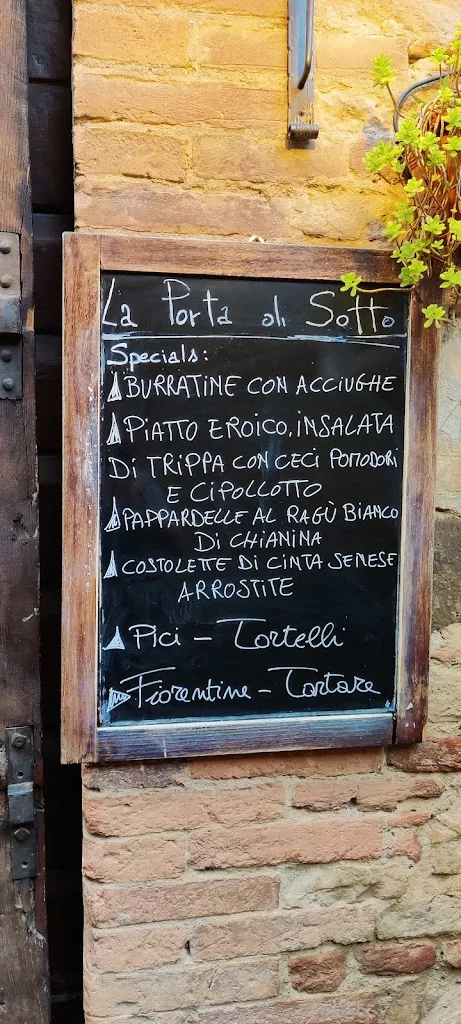 La Porta di Sotto
Specials:
BURRATINE CON ACCIUGHE
PIATTO EROICO, INSALATA
DI TRIPPA CON CECI POMODORI
E CIPOLLOTTO
PAPPARDELLE AL RAGÙ BIANCO
DI CHIANINA
COSTOLETTE DI CINTA SENESE
ARROSTITE
Pici - Tortelli
Fiorentine - Tartare